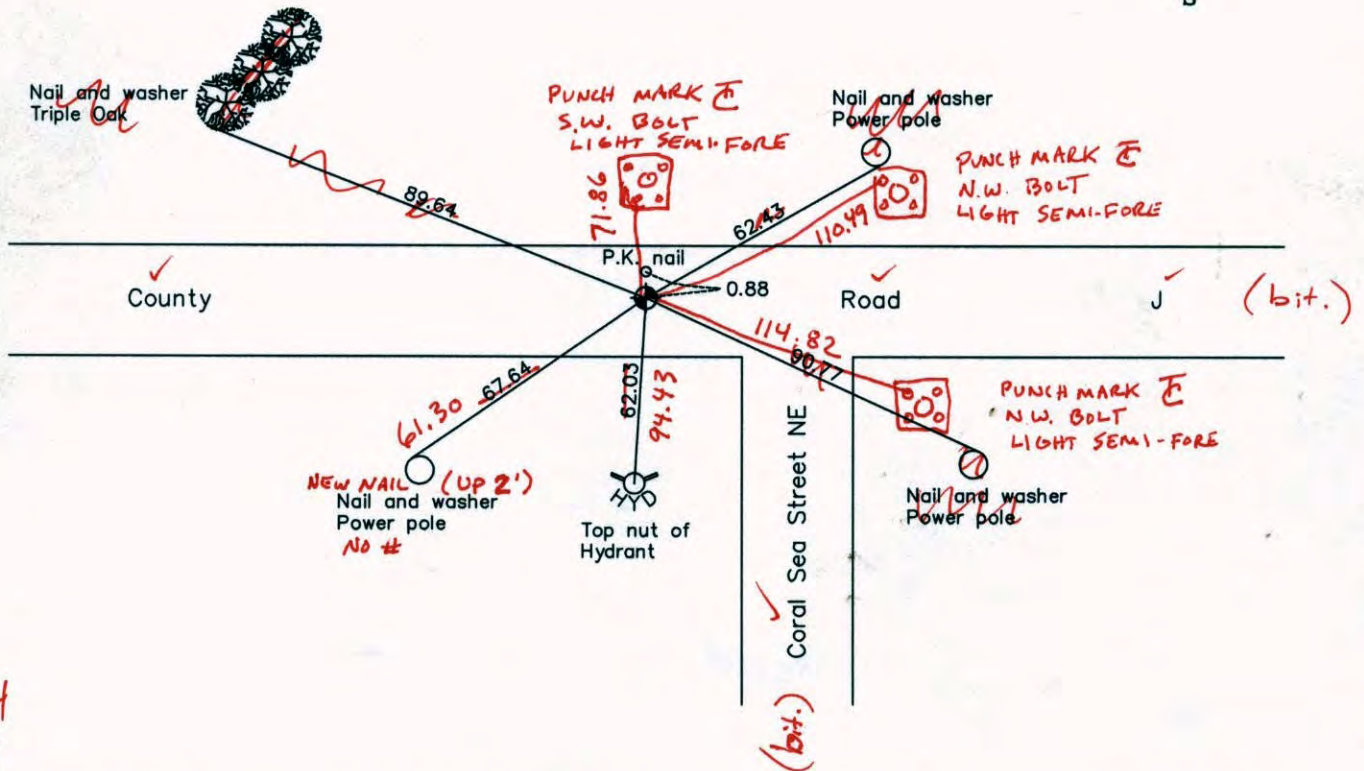 S
Nail and washer
Triple Oak
PUNCH MARK
S.W. BOLT
LIGHT SEMI-FORE
Nail and washer
Power pole
PUNCH MARK
N.W. BOLT
LIGHT SEMI-FORE
89.64
71.86
62.43
110.49
P.K. nail
0.88
County
Road
J
(bit.)
114.82
90.77
67.64
61.30
62.03
94.43
PUNCH MARK
N.W. BOLT
LIGHT SEMI-FORE
NEW NAIL (UP 2')
Nail and washer
Power pole
NO #
HYD
Top nut of
Hydrant
Nail and washer
Power pole
Coral Sea Street NE
(bit.)